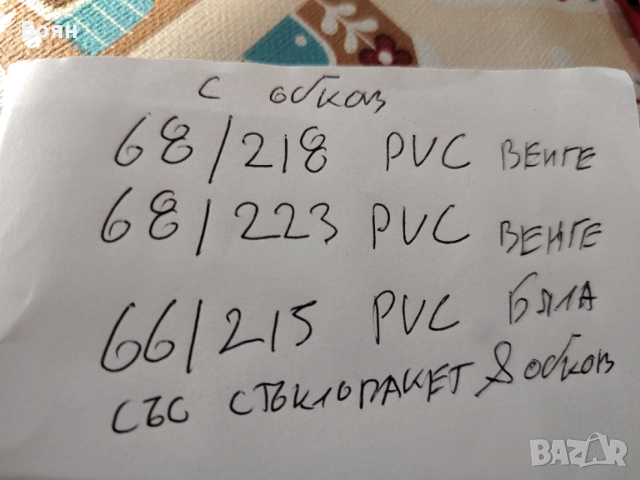 Боян
с обков
68/218 PVC ВЕНГЕ
68/223 PVC ВЕНГЕ
66/215 PVC БЯЛА
СЪС СТЪКЛОПАКЕТ & обков
BAZAR